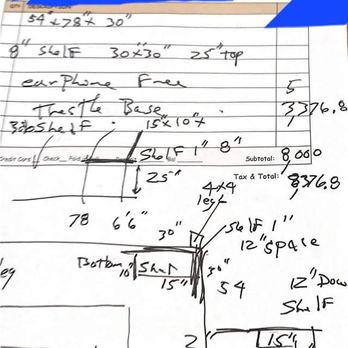 54"x78"x 30"
8" Shelf 30"x30" 25" top
earphone Free 5
Threstle Base . 3,376.8
30b Shelf . 15"x10"x
Shelf 1" 8"
Credit Card Check Paid Subtotal: 8,000
Tax & Total: 8376.8
25"
4x4
leg
78 6'6" 30" Shelf 1"
12" space
Bottom 10" Shelf 30"
15" 54 12" Dow
leg Shelf
2' 15"